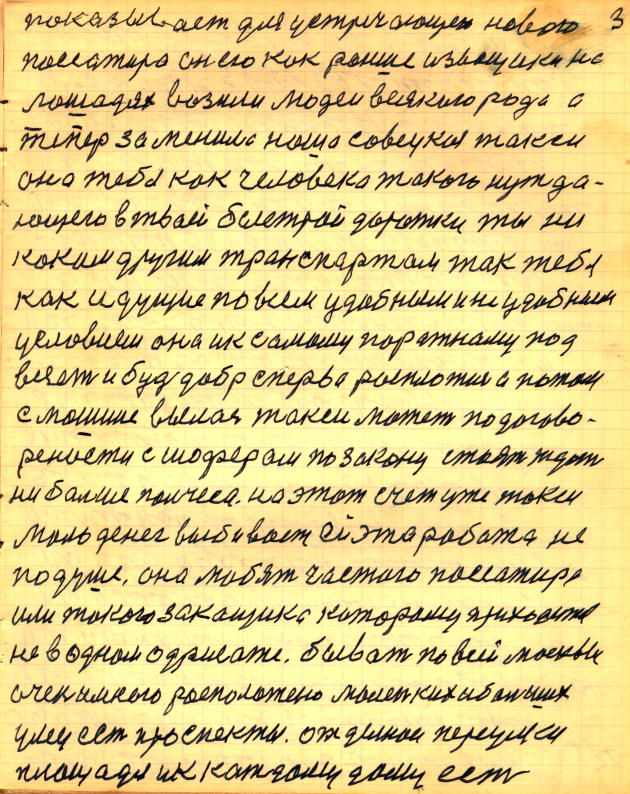 показывает для устричающего нового 3
пассатира он его как раньше извощики на
лошадях возили людеи всякого рода а
тепер заменила наша совецкая такси
она тебя как человека такого нужда-
ющего втвоей быстрой дорожки ты ни
каким другим транспартам так тебя
как идущие по всем удобным и не удобным
условием она и к самому паратнаму под
везет и буд добр сперва росплотис а потом
с машине вылаз такси может по догово-
рености с шоферам по закону стоят ждат
ни балше полчеса. на этот счет уже такси
мало денег выбивает ей эта работа не
подуше. она любят частого поссатира
или такого закащика которому приходится
не водном одрисате. бывать по всей москве
очен много росположено маленких и болших
улец ест проспекты. отделной переулки
площадя и к каждому дому ест